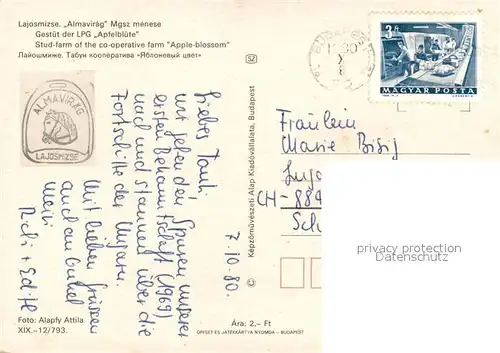 Lajosmizse. „Almavirág” Mgsz ménese
Gestüt der LPG „Apfelblüte”
Stud-farm of the co-operative farm "Apple-blossom"
Лайошмиже. Табун кооператива «Яблоневый цвет»
ALMAVIRÁG
LAJOSMIZSE
SZ
BUDAPEST
3 Ft
MAGYAR POSTA
7.10.80.
Liebes Tanti,
wir gehen den Spuren unserer
ersten Bekanntschaft (1969)
nach und staunen über die
Fortschritte der Ungarn.
Mit lieben Grüssen
auch an Onkel
Meiri
Richi + Edith
Fräulein
Marie Bisig
CH-884
Sch
privacy protection
watermark
Képzőművészeti Alap Kiadóvállalata, Budapest
©
Foto: Alapfy Attila
XIX.–12/793.
Ára: 2,– Ft
OFFSET ÉS JÁTÉKKÁRTYA NYOMDA – BUDAPEST